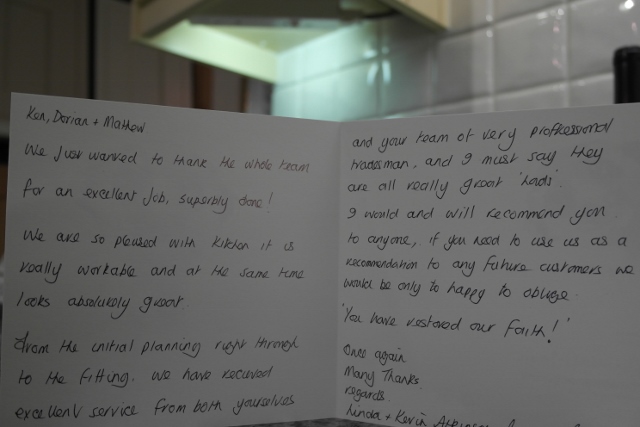 Ken, Dorian + Mathew
We Just wanted to thank the whole team
for an excellent Job, superbly done!
We are so pleased with kitchen it is
really workable and at the same time
looks absolutely great.
From the initial planning right through
to the fitting. we have recieved
excellent service from both yourselves
and your team of very proffessional
tradesman, and I must say they
are all really great 'lads'.
I would and will recommend you
to anyone, if you need to use us as a
recommendation to any future customers we
would be only to happy to oblidge.
'You have restored our faith!'
Once again
Many Thanks.
regards.
Linda + Kevin